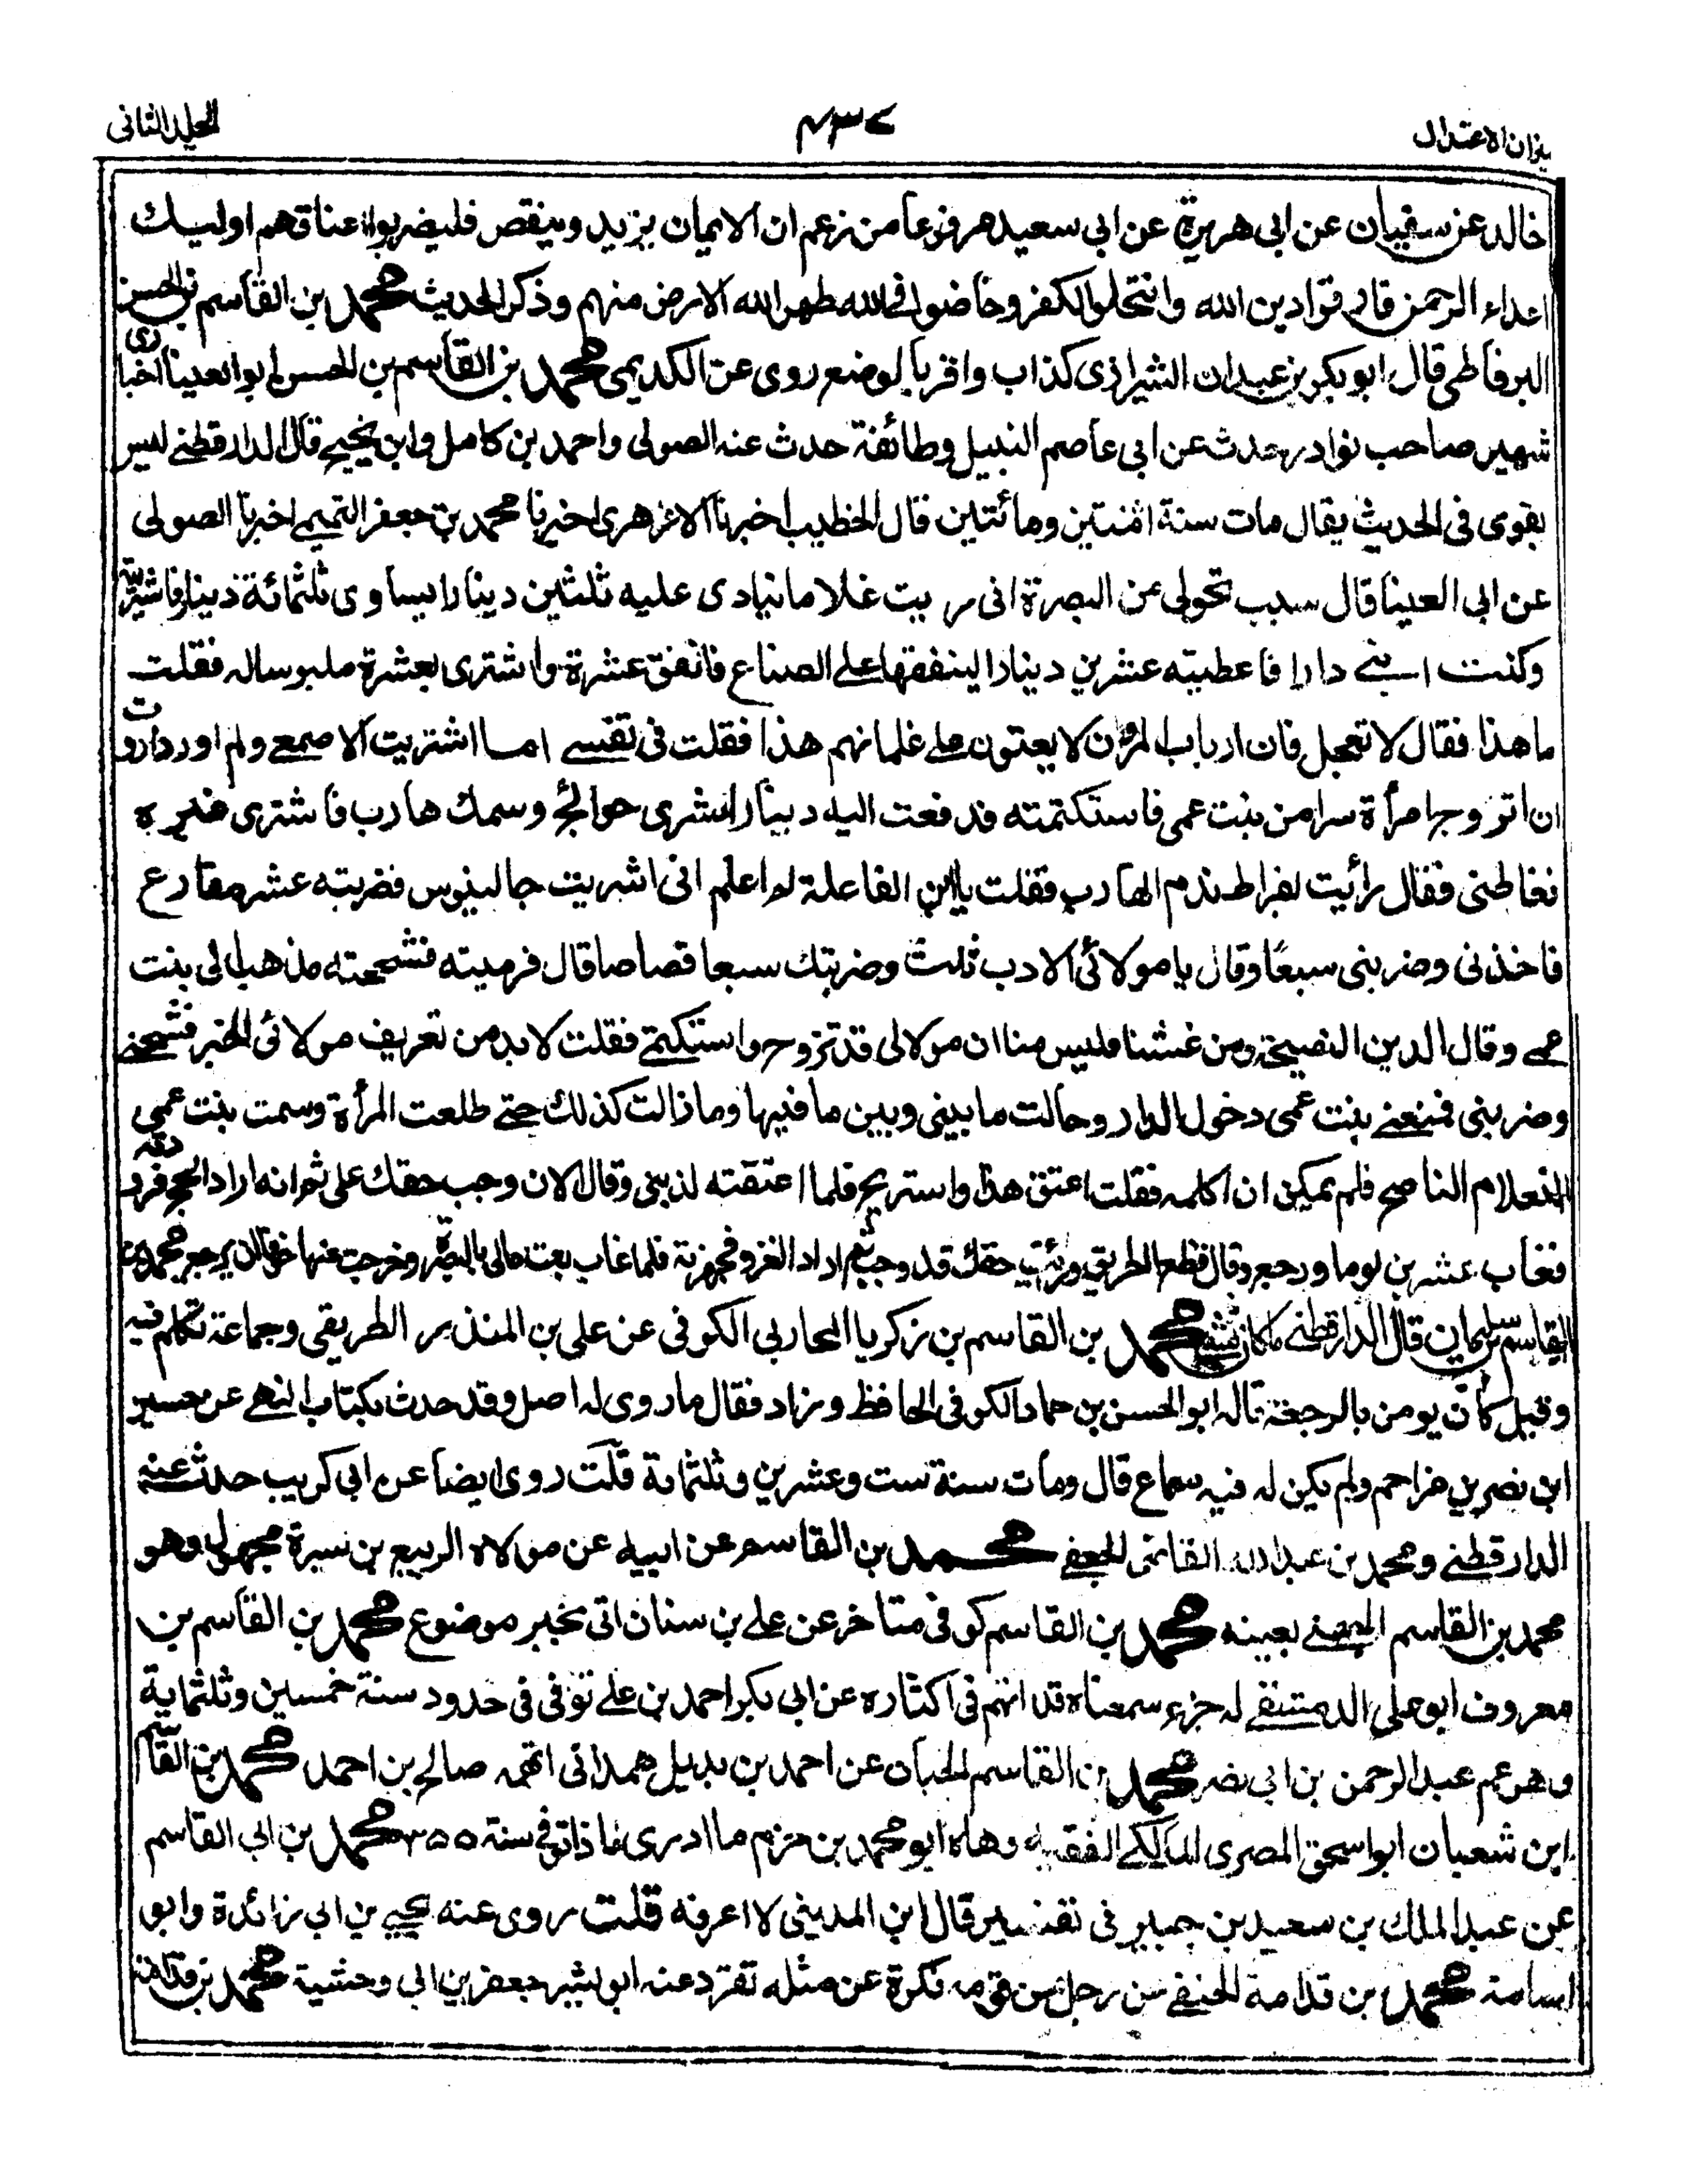 ميزان الاعتدال
٤٣٧
المجلد الثانی
خالد عن سفيان عن ابی هريرة عن ابی سعيد مرفوعا من زعم ان الايمان يزيد وينقص فليضربوا اعناقهم اوليك
اعداء الرحمن فارقوا دين الله وانتحلوا الكفر وخاضوا فی الله طهر الله الارض منهم وذكر الحديث محمد بن القاسم بن الحسن
البرفاطی قال ابو بكر بن عبدان الشيرازی كذاب واقر بالوضع روی عن الكديمی محمد بن القاسم بن الحسن ابو العينا اخباری
شهير صاحب نوادر حدث عن ابی عاصم النبيل وطائفة حدث عنه الصولی واحمد بن كامل وابن يحيی قال الدارقطنے ليس
بقوی فی الحديث يقال مات سنة اثنتين ومائتين قال الخطيب اخبرنا الازهری اخبرنا محمد بن جعفر التميمے اخبرنا الصولی
عن ابی العينا قال سبب تحولی عن البصرة انی رايت غلاما ينادی عليه ثلثين دينارا يساوی ثلثمائة دينار فاشتريته
وكنت ابنے دارا فاعطيته عشرين دينارا لينفقها علے الصناع فانفق عشرة واشتری بعشرة ملبوسا له فقلت
ما هذا فقال لا تعجل فان ارباب المروات لا يعتبون علے غلمانهم هذا فقلت فی نفسے اما اشتريت الاصمعے ولم ادر واردت
ان اتزوج امرأة سرا من بنت عمی فاستكتمته فدفعت اليه دينارا لشری حوائج وسمك هارب فاشتری غيره
فغاظنی فقال رأيت لبقراط يذم الهارب فقلت يا ابن الفاعلة لم اعلم انی اشتريت جالينوس فضربته عشر مقارع
فاخذنی وضربنی سبعا وقال يا مولائی الادب ثلث وضربتك سبعا قصاصا قال فرميته فشججته فذهب الی بنت
عمے وقال الدين النصيحة ومن غشنا فليس منا ان مولای قد تزوج واستكتمنے فقلت لا بد من تعريف مولائی الخبر فشجنے
وضربنی فمنعنے بنت عمی دخول الدار وحالت ما بينی وبين ما فيها وما زالت كذلك حتے طلعت المرأة وسمت بنت عمی
الغلام الناصح فلم يمكن ان اكلمه فقلت اعتق هذا واستريح فلما اعتقته لزمنی وقال الان وجب حقك علی ثم انه اراد الحج فزودته
فغاب عشرين يوما ورجع وقال قطع الطريق ورأيت حقك قد وجب ثم اراد الغزو فجهزته فلما غاب بعت مالی بالبصرة وخرجت عنها خوفا ان يرجع محمد بن
القاسم بن سليمان قال الدارقطنے ما كان بشئ محمد بن القاسم بن زكريا المحاربی الكوفی عن علی بن المنذر الطريقی وجماعة تكلم فيه
وقيل كان يومن بالرجعة قاله ابو الحسن بن حماد الكوفی الحافظ وزاد فقال ما روی له اصل وقد حدث بكتاب النهے عن حسين
ابن نصر بن مزاحم ولم يكن له فيه سماع قال ومات سنة ست وعشرين وثلثماية قلت روی ايضا عن ابی كريب حدث عنه
الدارقطنے ومحمد بن عبد الله القاضی الجعفے محمد بن القاسم عن ابيه عن مولاه الربيع بن سبرة مجهول وهو
محمد بن القاسم الجهنے بعينه محمد بن القاسم كوفی متاخر عن علے بن سنان اتی بخبر موضوع محمد بن القاسم بن
معروف ابو علی الدمشقے له جزء سمعناه قد اتهم فی اكثاره عن ابی بكر احمد بن علے توفی فی حدود سنة خمسين وثلثماية
وهو عم عبد الرحمن بن ابی نصر محمد بن القاسم الجبان عن احمد بن بديل همدانی اتهمه صالح بن احمد محمد بن القاسم
ابن شعبان ابو اسحق المصری المالكے الفقيه وهاه ابو محمد بن حزم ما ادری لماذا توفی سنة ٣٥٥ محمد بن ابی القاسم
عن عبد الملك بن سعيد بن جبير فی تفسير قال ابن المدينی لا اعرفه قلت روی عنه يحيے بن ابی زائدة وابو
اسامة محمد بن قدامة الحنفے عن رجل من قومه نكرة عن مثله تفرد عنه ابو بشير جعفر بن ابی وحشية محمد بن قدامة